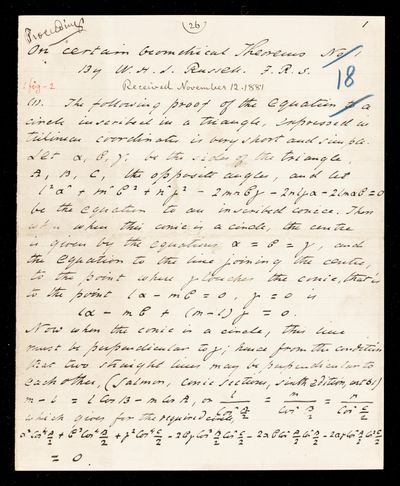 Proceedings
(26)
1
On certain Geometrical Theorems No 1.
By W. H. L. Russell. F.R.S.
18
1 fig-2
Received November 12. 1881
(1). The following proof of the equation to a
circle inscribed in a triangle, expressed in
trilinear coordinates is very short and simple.
Let α, β, γ, be the sides of the triangle
A, B, C, the opposite angles, and let
l²α² + m²β² + n²γ² - 2mnβγ - 2nlγα - 2lmαβ = 0
be the equation to an inscribed conic. Then
when this conic is a circle, the centre
is given by the equations α = β = γ, and
the equation to the line joining the centre,
to the point where γ touches the conic, that is
to the point lα - mβ = 0, γ = 0 is
lα - mβ + (m-l)γ = 0.
Now when the conic is a circle, this line
must be perpendicular to γ; hence from the condition
that two straight lines may be perpendicular to
each other, (Salmon, Conic Sections, sixth edition, art 61)
m - l = l cos B - m cos A, or l/cos² A/2 = m/cos² B/2 = n/cos² C/2
which gives for the required circle,
α² cos⁴ A/2 + β² cos⁴ B/2 + γ² cos⁴ C/2 - 2βγ cos² B/2 cos² C/2 - 2αβ cos² A/2 cos² B/2 - 2αγ cos² A/2 cos² C/2
= 0.